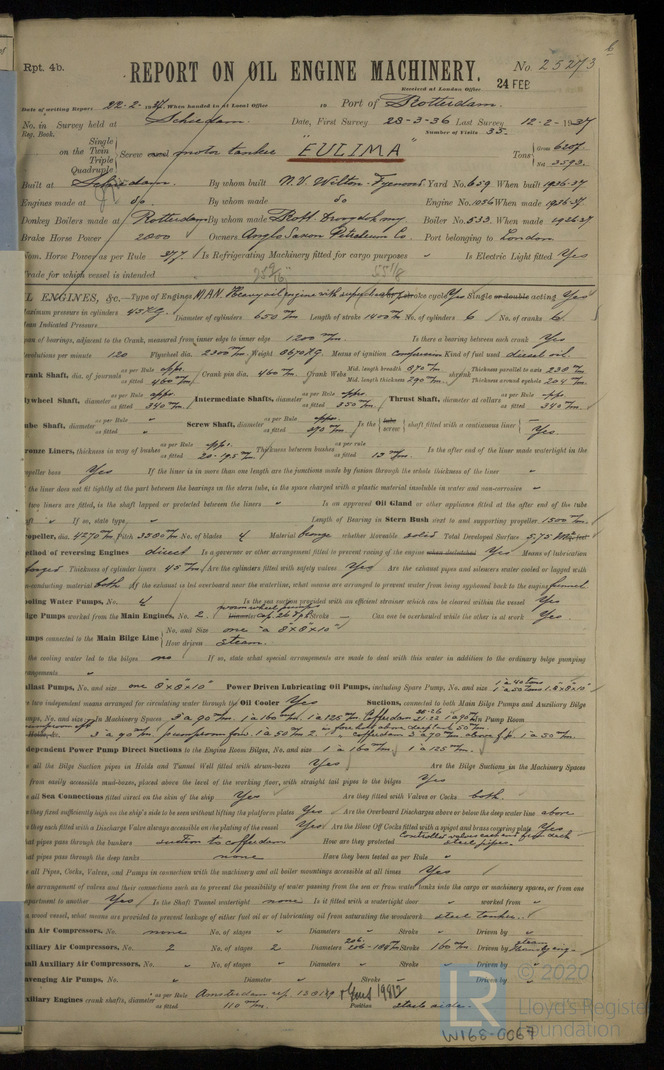 6
Rpt. 4b.
REPORT ON OIL ENGINE MACHINERY.
No. 25273
Received at London Office 24 FEB
Date of writing Report 22-2-1937 When handed in at Local Office 19 Port of Rotterdam.
No. in Survey held at Schiedam. Date, First Survey 23-3-36 Last Survey 12-2-1937
Reg. Book. Number of Visits 35.
Single
on the Twin
Triple
Quadruple
Screw vessel motor tanker "EULIMA" Tons Gross 6207. Net 3593.
Built at Schiedam. By whom built N.V. Wilton-Fyenoord Yard No. 659 When built 1936-37
Engines made at do. By whom made do Engine No. 1056 When made 1936-37
Donkey Boilers made at Rotterdam By whom made Boiler No. 533. When made 1936-37
Brake Horse Power 2800 Owners Anglo Saxon Petroleum Co. Port belonging to London
Nom. Horse Power as per Rule 377 Is Refrigerating Machinery fitted for cargo purposes " Is Electric Light fitted Yes
Trade for which vessel is intended
OIL ENGINES, &c.—Type of Engines M.A.N. Heavy oil engine with supercharge stroke cycle Yes Single or double acting Yes
Maximum pressure in cylinders 45 Kg. Diameter of cylinders 650 m/m. Length of stroke 1400 m/m No. of cylinders 6 No. of cranks 6.
Mean Indicated Pressure
Span of bearings, adjacent to the Crank, measured from inner edge to inner edge 1200 m/m. Is there a bearing between each crank Yes
Revolutions per minute 120 Flywheel dia. 2300 m/m. Weight Means of ignition compression Kind of fuel used diesel oil
Crank Shaft, dia. of journals as per Rule appr. as fitted 460 m/m. Crank pin dia. 460 m/m. Crank Webs Mid. length breadth 870 m/m. Mid. length thickness 290 m/m. shrunk Thickness parallel to axis 230 m/m Thickness around eyehole 204 m/m.
Flywheel Shaft, diameter as per Rule appr. as fitted 340 m/m. Intermediate Shafts, diameter as per Rule appr. as fitted 350 m/m. Thrust Shaft, diameter at collars as per Rule appr. as fitted 340 m/m.
Tube Shaft, diameter as per Rule " as fitted " Screw Shaft, diameter as per Rule appr. as fitted 393 m/m. Is the tube screw shaft fitted with a continuous liner Yes.
Bronze Liners, thickness in way of bushes as per Rule appr. as fitted 20-19.5 m/m. Thickness between bushes as per rule as fitted 19 m/m. Is the after end of the liner made watertight in the
propeller boss Yes If the liner is in more than one length are the junctions made by fusion through the whole thickness of the liner "
If the liner does not fit tightly at the part between the bearings in the stern tube, is the space charged with a plastic material insoluble in water and non-corrosive "
If two liners are fitted, is the shaft lapped or protected between the liners " Is an approved Oil Gland or other appliance fitted at the after end of the tube
shaft " If so, state type, " Length of Bearing in Stern Bush next to and supporting propeller 1500 m/m.
Propeller, dia. 4270 m/m. Pitch 3300 m/m No. of blades 4 Material bronze whether Moveable solid Total Developed Surface 5.75
Method of reversing Engines direct Is a governor or other arrangement fitted to prevent racing of the engine when declutched Yes Means of lubrication
forced Thickness of cylinder liners 45 m/m. Are the cylinders fitted with safety valves Yes Are the exhaust pipes and silencers water cooled or lagged with
non-conducting material both If the exhaust is led overboard near the waterline, what means are arranged to prevent water from being syphoned back to the engine funnel
Cooling Water Pumps, No. 4 Is the sea suction provided with an efficient strainer which can be cleared within the vessel Yes
Bilge Pumps worked from the Main Engines, No. 2. Stroke Can one be overhauled while the other is at work Yes.
Pumps connected to the Main Bilge Line No. and Size one a 8"x8"x10"
How driven steam.
Is the cooling water led to the bilges no If so, state what special arrangements are made to deal with this water in addition to the ordinary bilge pumping
arrangements "
Ballast Pumps, No. and size one 8"x8"x10" Power Driven Lubricating Oil Pumps, including Spare Pump, No. and size 1 a 40 tons 1 a 50 tons
Are two independent means arranged for circulating water through the Oil Cooler Yes Suctions, connected to both Main Bilge Pumps and Auxiliary Bilge
Pumps, No. and size:—In Machinery Spaces 3 a 90 m/m. 1 a 160 m/m 1 a 125 m/m. Cofferdam In Pump Room
Independent Power Pump Direct Suctions to the Engine Room Bilges, No. and size 1 a 160 m/m 1 a 125 m/m.
Are all the Bilge Suction pipes in Holds and Tunnel Well fitted with strum-boxes Yes Are the Bilge Suctions in the Machinery Spaces
led from easily accessible mud-boxes, placed above the level of the working floor, with straight tail pipes to the bilges Yes
Are all Sea Connections fitted direct on the skin of the ship Yes Are they fitted with Valves or Cocks both.
Are they fixed sufficiently high on the ship's side to be seen without lifting the platform plates Yes Are the Overboard Discharges above or below the deep water line above
Are they each fitted with a Discharge Valve always accessible on the plating of the vessel Yes Are the Blow Off Cocks fitted with a spigot and brass covering plate Yes
What pipes pass through the bunkers suction to cofferdam How are they protected steel pipes.
What pipes pass through the deep tanks none Have they been tested as per Rule "
Are all Pipes, Cocks, Valves, and Pumps in connection with the machinery and all boiler mountings accessible at all times Yes
Is the arrangement of valves and their connections such as to prevent the possibility of water passing from the sea or from water tanks into the cargo or machinery spaces, or from one
compartment to another Yes Is the Shaft Tunnel watertight none Is it fitted with a watertight door " worked from "
If a wood vessel, what means are provided to prevent leakage of either fuel oil or of lubricating oil from saturating the woodwork steel tanker.
Main Air Compressors, No. none No. of stages " Diameters " Stroke " Driven by "
Auxiliary Air Compressors, No. 2 No. of stages 2 Diameters Stroke 160 m/m. Driven by steam
Small Auxiliary Air Compressors, No. " No. of stages " Diameters " Stroke " Driven by "
Scavenging Air Pumps, No. " Diameter " Stroke " Driven by "
Auxiliary Engines crank shafts, diameter as per Rule Amsterdam rp. as fitted 110 m/m. Position
© 2020
LR
Lloyd's Register
Foundation
W168-0067